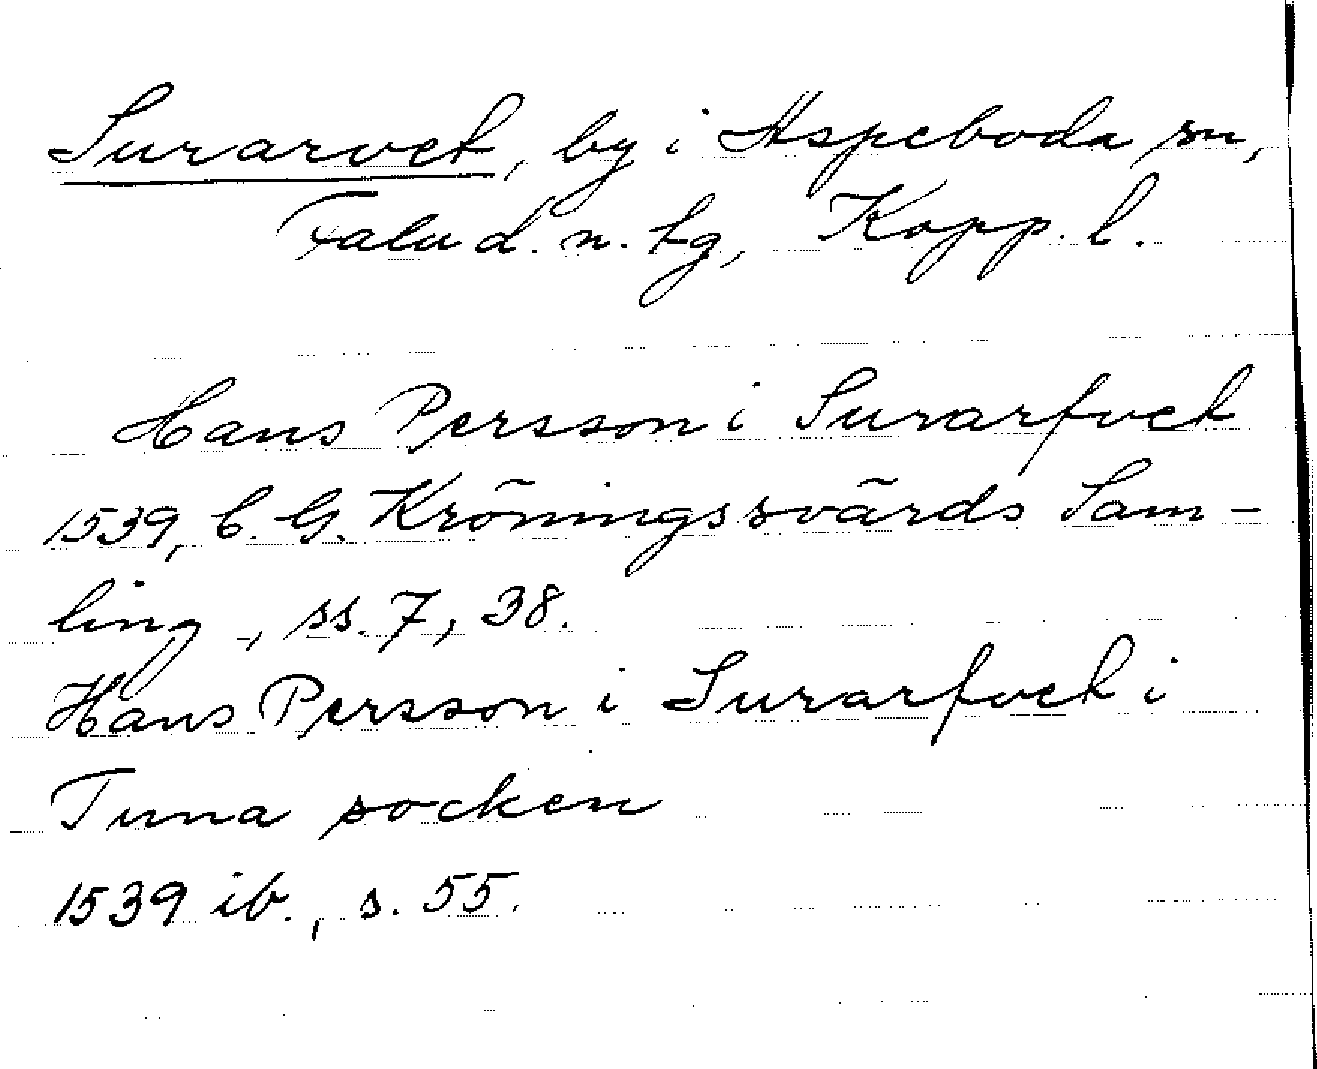 Surarvet, by i Aspeboda sn,
Falu d. n. tg, Kopp. l.
Hans Persson i Surarfvet
1539, C. G. Kröningssvärds Sam-
ling -, ss. 7, 38.
Hans Persson i Surarfvet i
Tuna socken
1539 ib., s. 55.